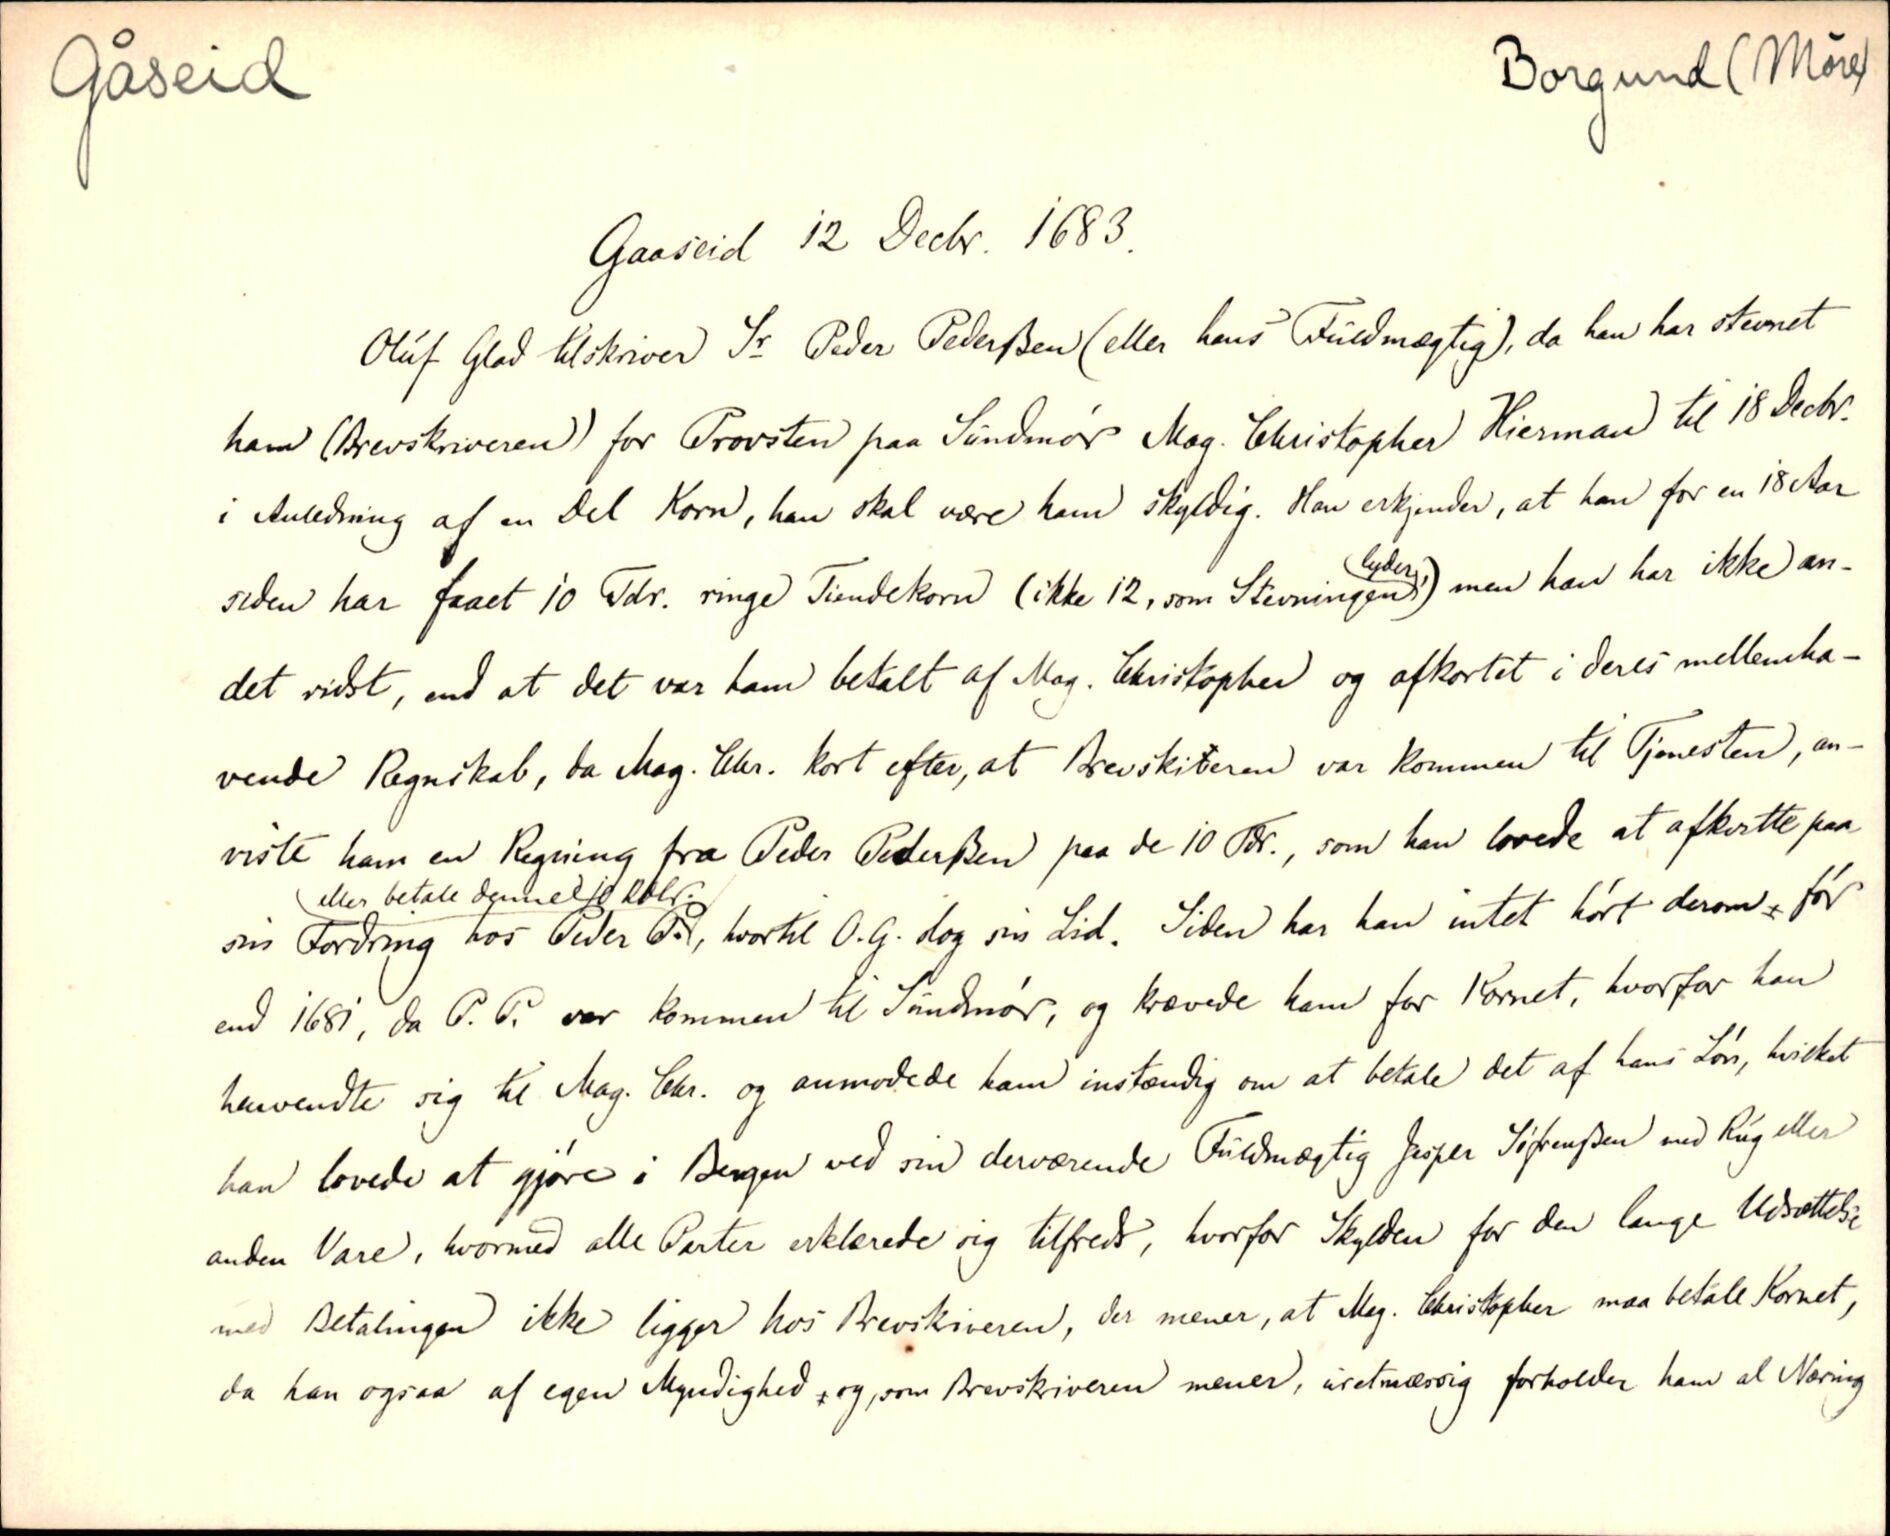 Gåseid
Borgund (Møre)
Gaaseid 12 Decbr. 1683.
Oluf Glad tilskriver Sr Peder Pederßen (eller hans Fuldmægtig), da han har stevnet
ham (Brevskriveren) for Provsten paa Sundmør Mag. Christopher Hierman til 18 Decbr.
i Anledning af en Del Korn, han skal være ham skyldig. Han erkjender, at han for en 18 Aar
siden har faaet 10 Tdr. ringe Tiendekorn (ikke 12, som Stevningen lyder,) men han har ikke an-
det vidst, end at det var ham betalt af Mag. Christopher og afkortet i deres mellemha-
vende Regnskab, da Mag. Chr. kort efter, at Brevskiveren var kommen til Tjenesten, an-
viste ham en Regning fra Peder Pederßen paa de 10 Tdr., som han lovede at afkortte paa
eller betale denne 10 Rdlr.
sin Fordring hos Peder P., hvortil O.G. slog sin Lid. Siden har han intet hørt derom, før
end 1681, da P. P. var kommen til Sundmør, og krævede ham for Kornet, hvorfor han
henvendte sig til Mag. Chr. og anmodede ham instændig om at betale det af hans Løn, hvilket
han lovede at gjøre i Bergen ved sin derværende Fuldmægtig Jesper Søfrenßen med Rug eller
anden Vare, hvormed alle Parter erklærede sig tilfreds, hvorfor Skylden for den lange Udsættelse
med Betalingen ikke ligger hos Brevskriveren, der mener, at Mag. Christopher maa betale Kornet,
da han ogsaa af egen Myndighed, og, som Brevskriveren mener, uretmæssig forholder ham al Næring